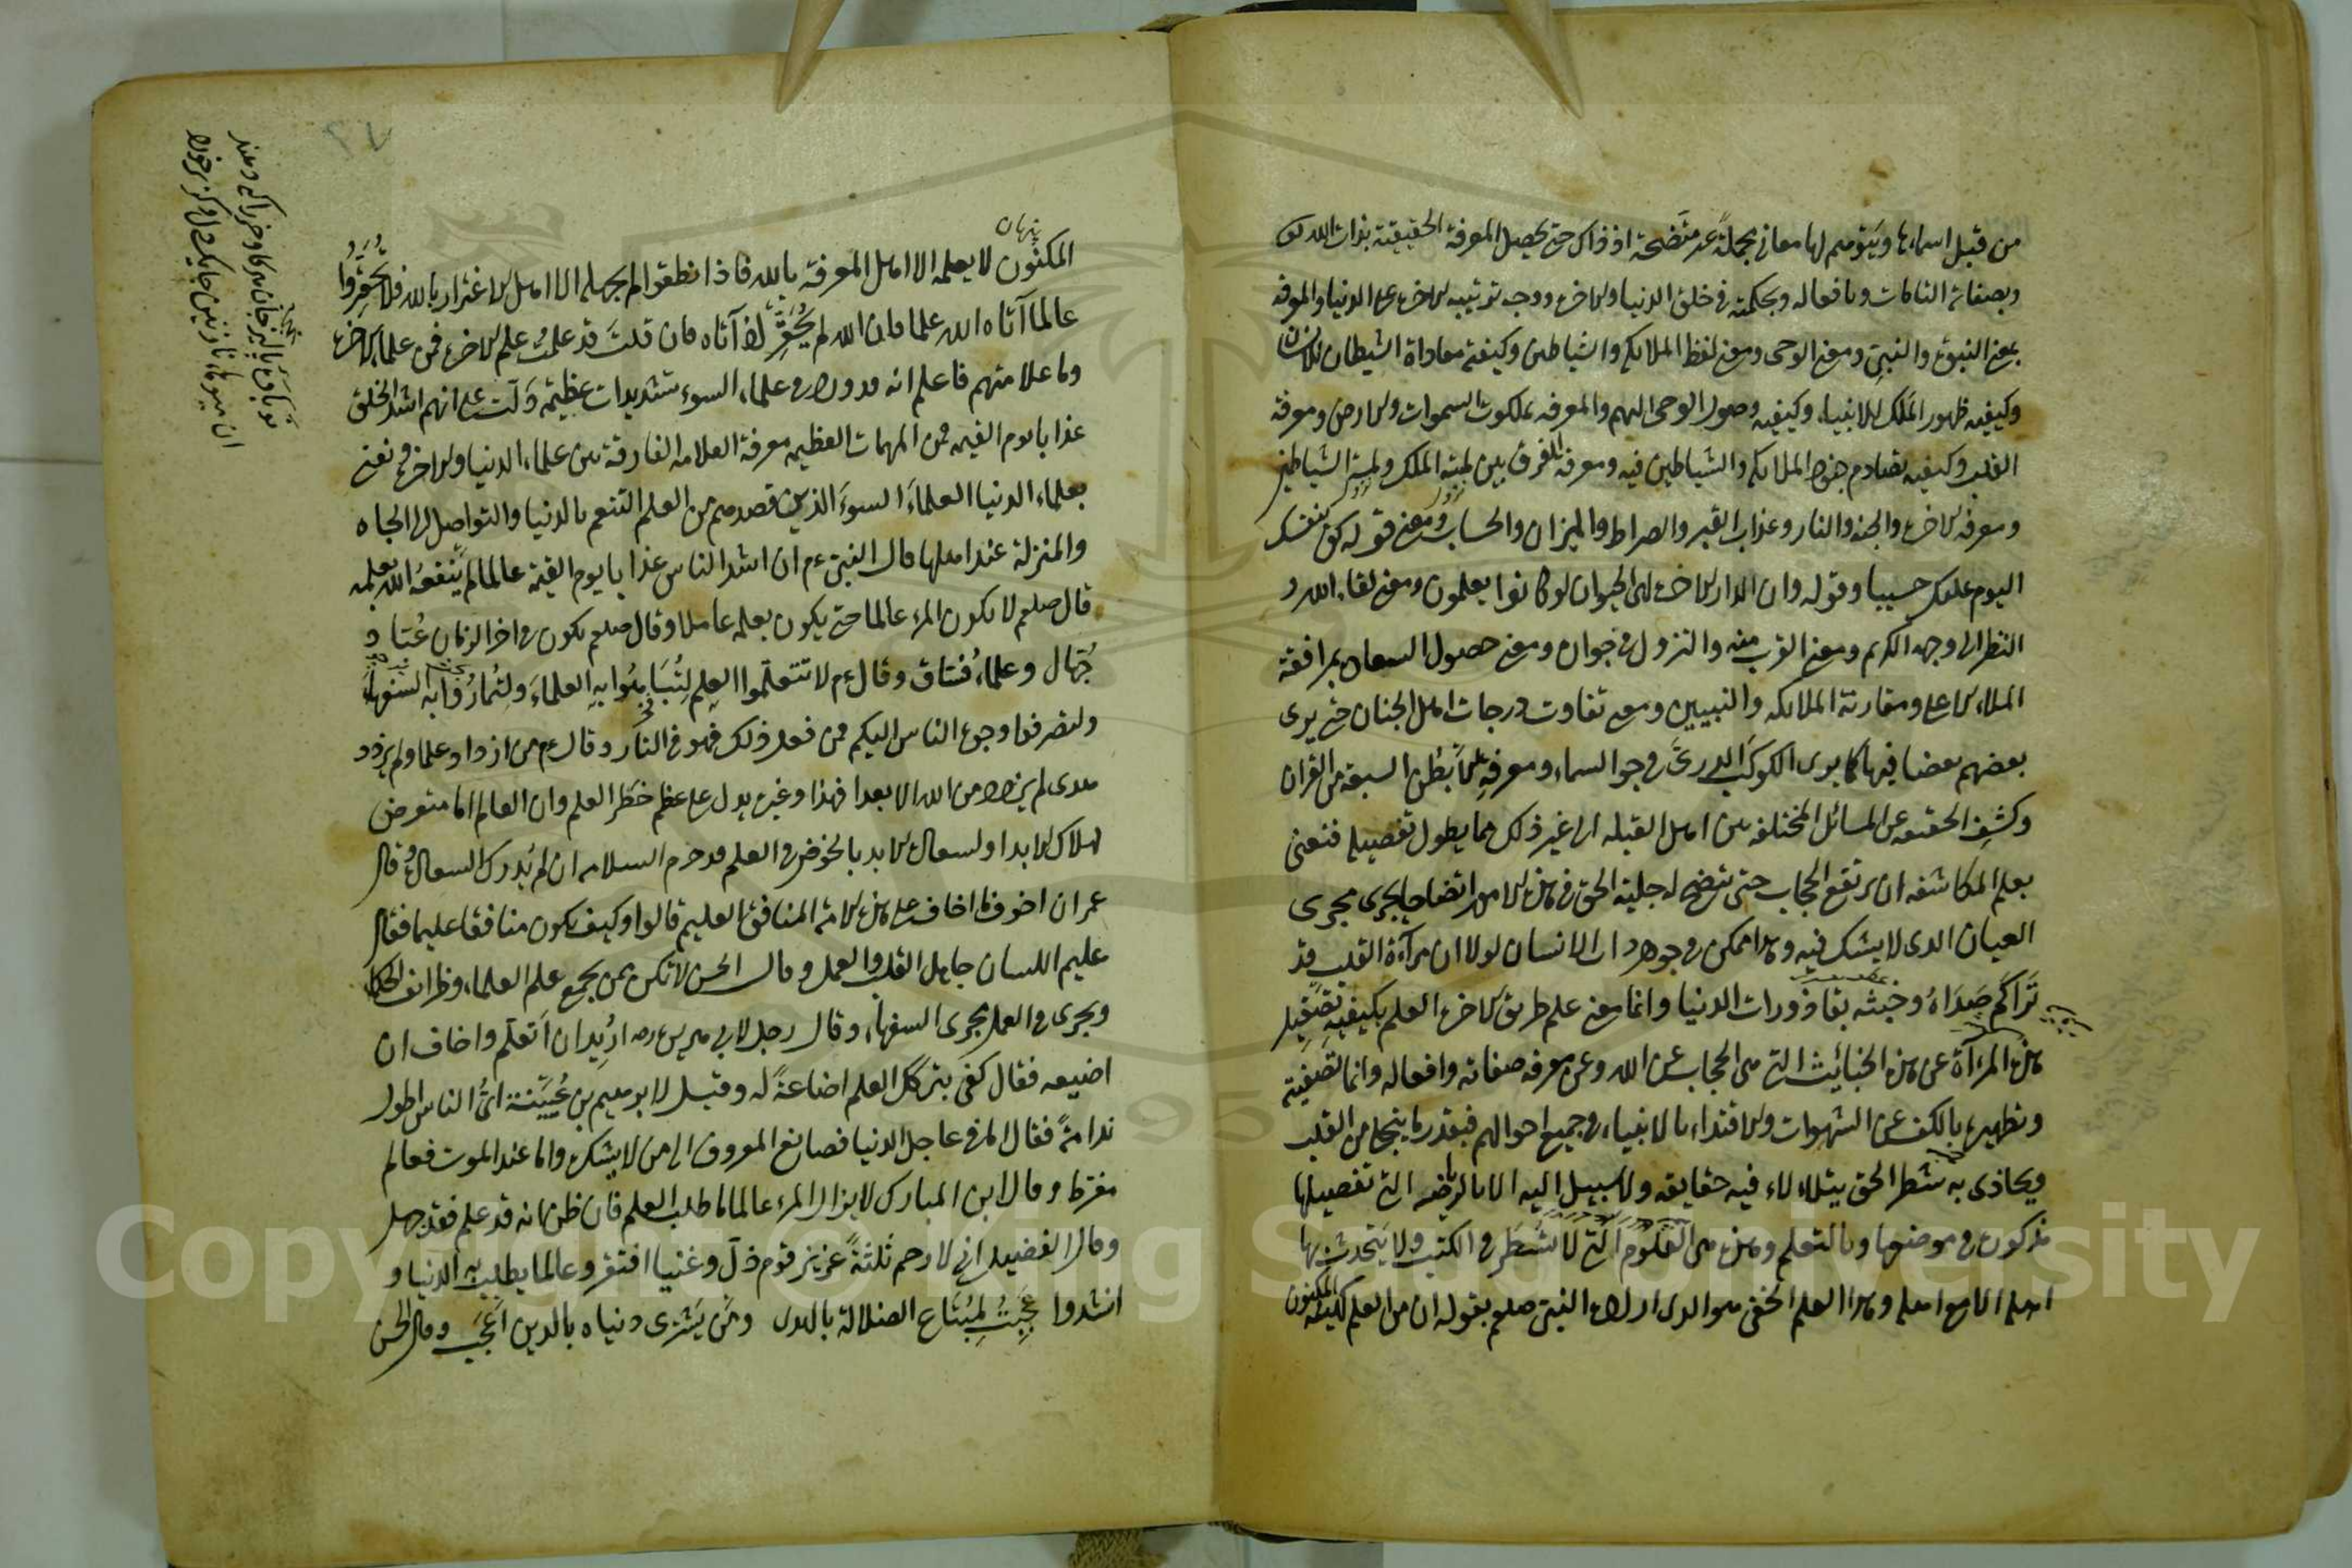 من قبل اسماءها ويتوهم لها معاني مجملة غير متضحة اذ ذاك حتى يحصل المعرفة الحقيقية بذات الله تع
وبصفاته التامات وبافعاله وبحكمته في خلق الدنيا والاخرة ووجه ترتيبه الاخرة على الدنيا والمعرفة
بمعنى النبوة والنبي ومعنى الوحي ومعنى لفظ الملائكة والشياطين وكيفية معاداة الشيطان للانسان
وكيفية ظهور الملك للانبياء وكيفية وصول الوحي اليهم والمعرفة بملكوت السموات والارض ومعرفة
القلب وكيفية تصادم جنود الملائكة والشياطين فيه ومعرفة الفرق بين لمة الملك ولمة الشياطين
ومعرفة الاخرة والجنة والنار وعذاب القبر والصراط والميزان والحساب ومعنى قوله كفى بنفسك
اليوم عليك حسيبا وقوله وان الدار الاخرة لهي الحيوان لو كانوا يعلمون ومعنى لقاء الله و
النظر الى وجهه الكريم ومعنى القرب منه والنزول في جواره ومعنى حصول السعادة بمرافقة
الملاء الاعلى ومقارنة الملائكة والنبيين ومعنى تفاوت درجات اهل الجنان حتى يرى
بعضهم بعضا فيها كما يرى الكوكب الدري في جو السماء ومعرفة الابطن السبعة من القران
وكشف الحقيقة عن المسائل المختلفة بين اهل القبلة الى غير ذلك مما يطول تفصيله فنعني
بعلم المكاشفة ان يرتفع الحجاب حتى تتضح له جلية الحق في هذه الامور اتضاحا يجرى مجرى
العيان الذي لا يشك فيه وهذا ممكن في جوهر ذات الانسان لولا ان مرآة القلب قد
تراكم صداه وخبثه بقاذورات الدنيا وانما معنى علم طريق الاخرة العلم بكيفية تصقيل
هذه المرآة عن هذه الخبائث التي هي الحجاب عن الله وعن معرفة صفاته وافعاله وانما تصفيته
وتطهيره بالكف عن الشهوات والاقتداء بالانبياء في جميع احوالهم فبقدر ما ينجلي من القلب
ويحاذى به شطر الحق يتلاءلاء فيه حقايقه ولا سبيل اليه الا بالرياضة التي تفصيلها
مذكور في موضعها وبالتعلم وهذه هي العلوم التي لا تسطر في الكتب ولا يتحدث بها
اهلها الا مع اهله وهذا العلم الخفي هو الذي اراده النبي صلعم بقوله ان من العلم كهيئة المكنون
پنهان
المكنون لا يعلمه الا اهل المعرفة بالله فاذا نطقوا لم يجهله الا اهل الاغترار بالله فلا تحقروا
عالما آتاه الله علما فان الله لم يحقره اذ آتاه فان قلت قد علمت علم الاخرة فمن علماء الاخرة
وما علامتهم فاعلم انه قد ورد في علماء السوء تشديدات عظيمة دلت على انهم اشد الخلق
عذابا يوم القيمة فمن المهمات العظيمة معرفة العلامة الفارقة بين علماء الدنيا والاخرة ونعني
بعلماء الدنيا العلماء السوء الذين قصدهم من العلم التنعم بالدنيا والتواصل الى الجاه
والمنزلة عند اهلها قال النبي عم ان اشد الناس عذابا يوم القيمة عالما لم ينفعه الله بعلمه
قال صلعم لا يكون المرء عالما حتى يكون بعلمه عاملا وقال صلعم يكون في اخر الزمان عباد
جهال وعلماء فساق وقال عم لا تتعلموا العلم لتباهوا به العلماء ولتماروا به السفهاء
ولتصرفوا وجوه الناس اليكم فمن فعل ذلك فهو في النار وقال عم من ازداد علما ولم يزدد
هدى لم يزدد من الله الا بعدا فهذا وغيره يدل على عظم خطر العلم وان العالم اما متعرض
لهلاك الابد او لسعادة الابد بالخوض في العلم قد حرم السلامة ان لم يدرك السعادة وقال
عمر ان اخوف ما اخاف على هذه الامة المنافق العليم قالوا وكيف يكون منافقا عليما فقال
عليم اللسان جاهل القلب والعمل وقال الحسن لا تكن ممن يجمع علم العلماء وظرائف الحكماء
ويجرى في العمل مجرى السفهاء وقال رجل لابي هريرة رضه اريد ان اتعلم واخاف ان
اضيعه فقال كفى بتركك العلم اضاعة له وقيل لابرهيم بن عيينة اي الناس اطول
ندامة فقال اما في عاجل الدنيا فصانع المعروف الى من لا يشكره واما عند الموت فعالم
مفرط وقال ابن المبارك لا يزال المرء عالما ما طلب العلم فان ظن انه قد علم فقد جهل
وقال الفضيل اني لارحم ثلثة عزيز قوم ذل وغنيا افتقر وعالما يطلب به الدنيا و
انشدوا عجبت لمبتاع الضلالة بالهدى ومن يشترى دنياه بالدين اعجب وقال الحسن